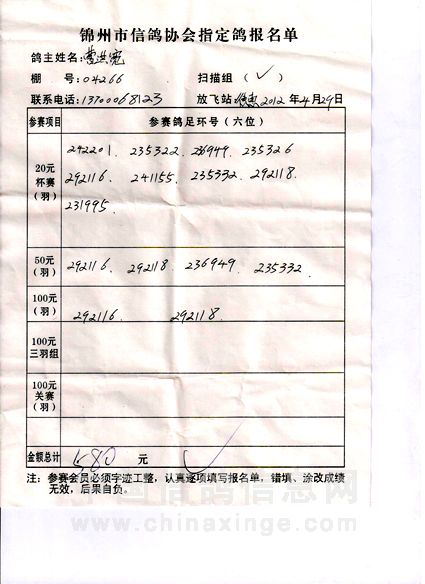 锦州市信鸽协会指定鸽报名单
鸽主姓名:
棚 号:04266 扫描组 (✓)
联系电话:13700068123 放飞站: 2012年4月29日
参赛项目 参赛鸽足环号(六位)
20元
杯赛
(羽)
242201. 235322. 236949. 235326
292116. 241155. 235332. 292118.
231995.
50元
(羽)
292116. 292118. 236949. 235332.
100元
(羽)
292116. 292118.
100元
三羽组
100元
关赛
(羽)
金额总计 580 元 ✓
注: 参赛会员必须字迹工整,认真逐项填写报名单,错填、涂改成绩
无效,后果自负。
中国信鸽信息网
www.chinaxinge.com